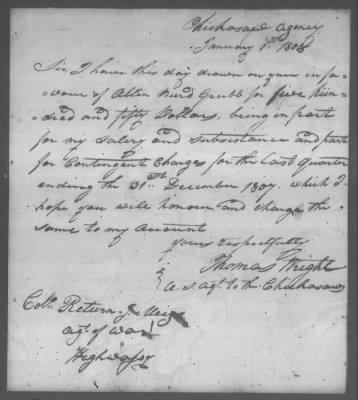 Chickasaw Agency
January 1st 1808
Sir, I have this day drawn on you in fa-
-vour of Allen Burd Grubb for five hun-
-dred and fifty Dollars, being in part
for my Salery and Subsistance and part
for Contingent Charges for the last Quarter
ending the 31st December 1807. which I
hope you will honour and charge the
same to my account
yours respectfully
Thomas Wright
U. S. agt. to the Chickasaws
Coln. Return J. Meigs
agt. of War
Highwassy